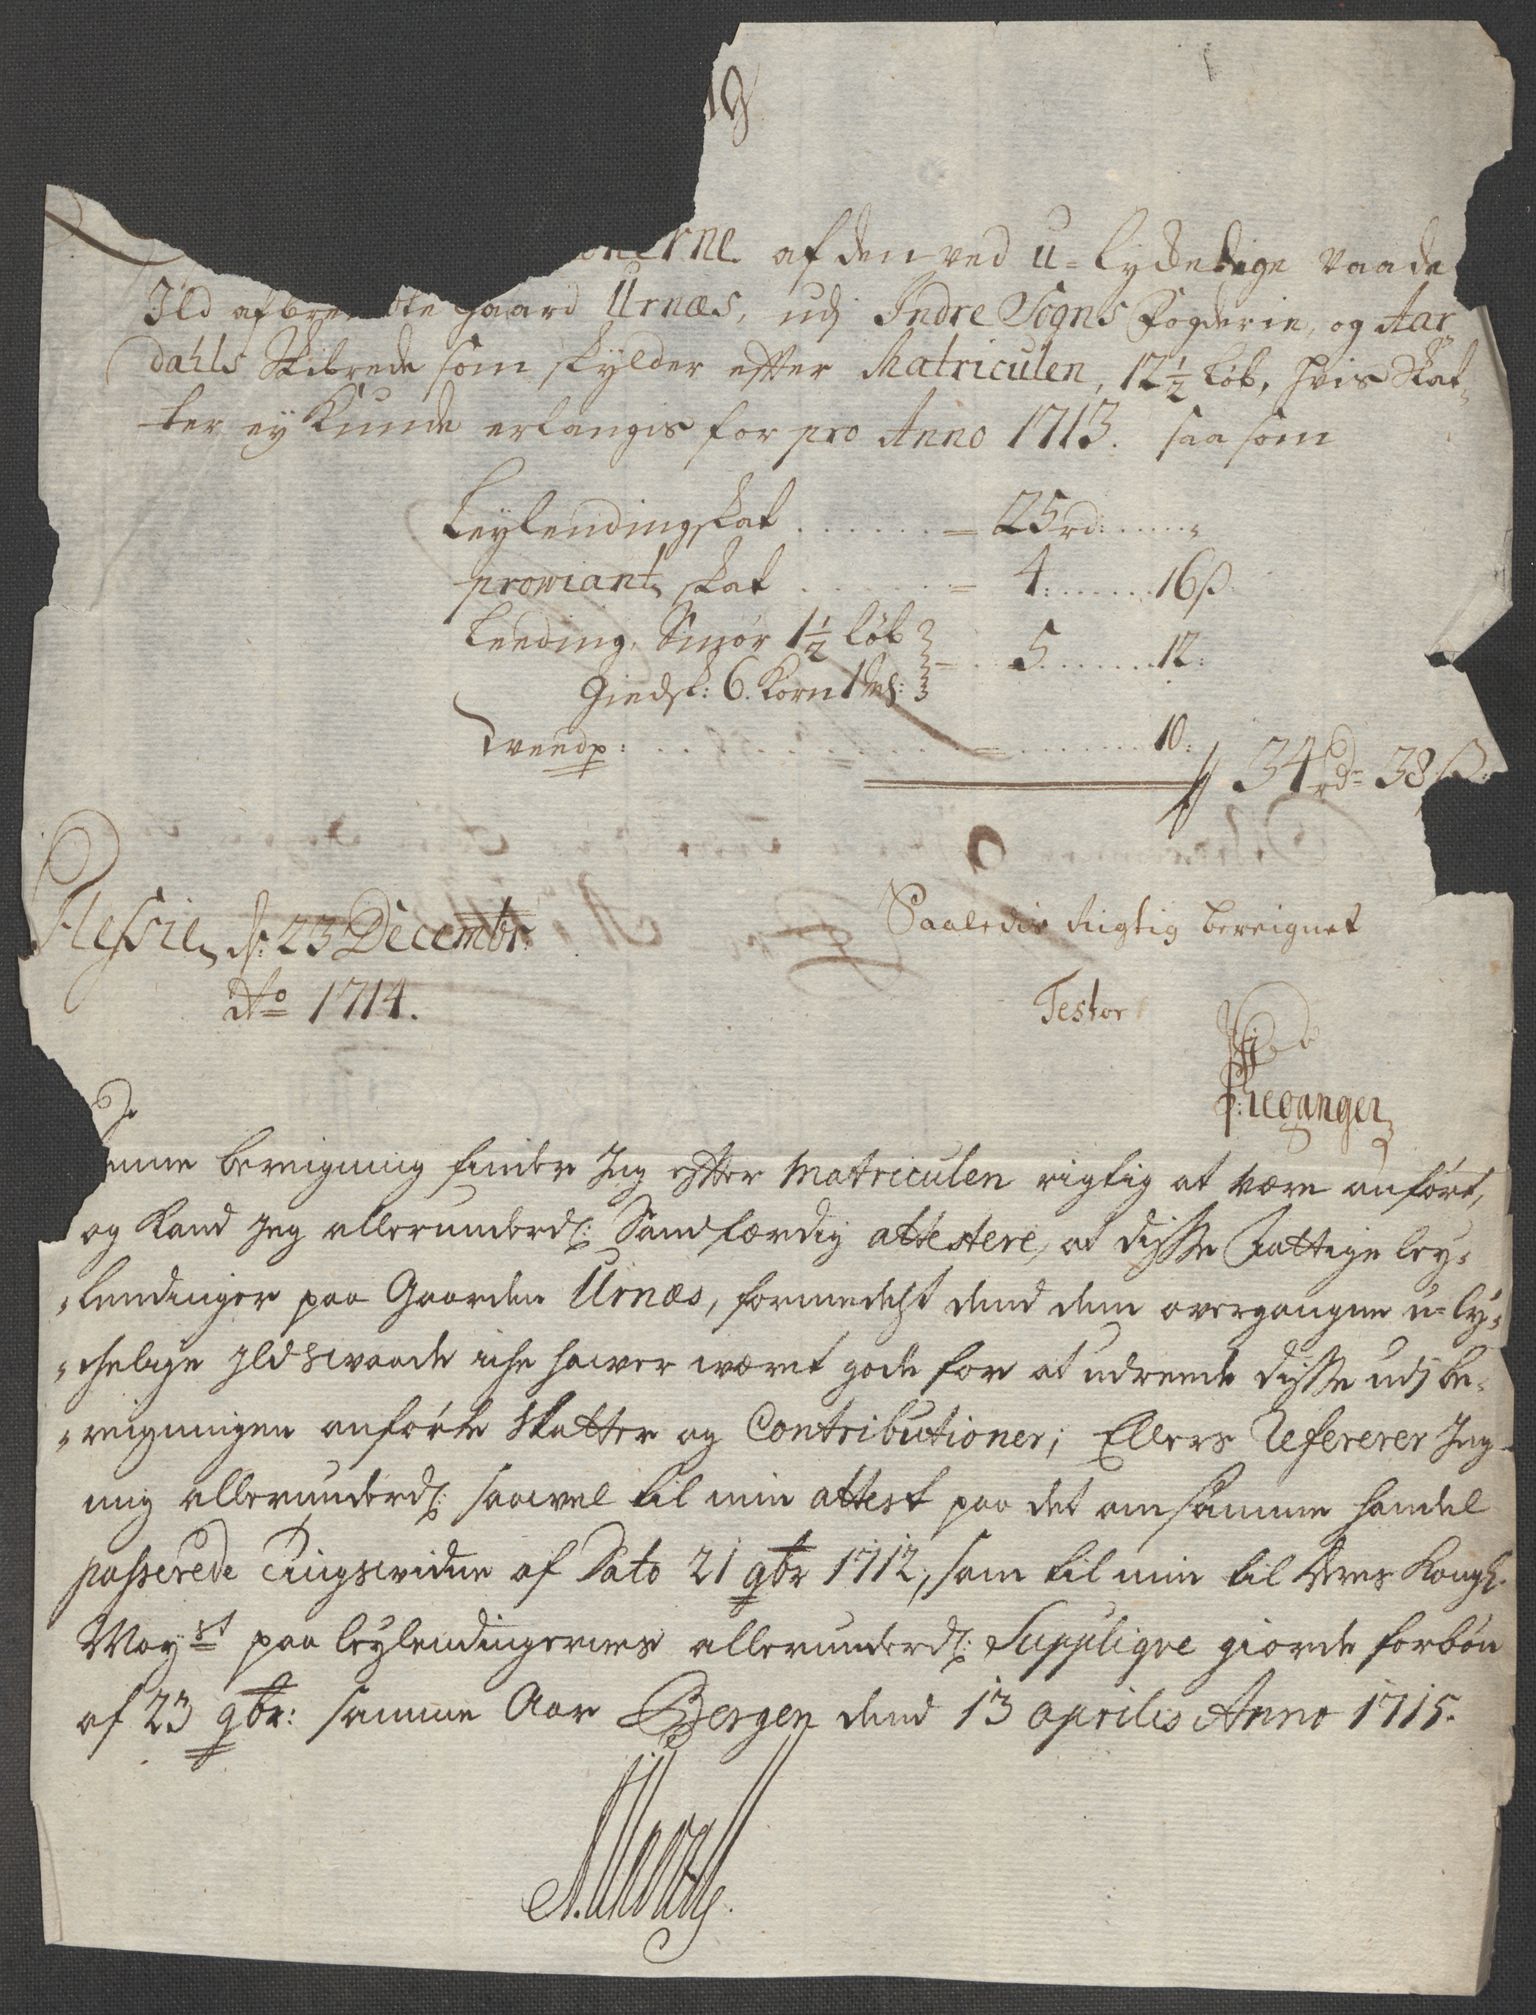 onerne af den ved u-lydedige vaade
Ild afbrendte gaard Urnæs, udj Indre Sogns Fogderie, og Aar
dahls Skibrede som skylder effter Matriculen, 12 1/2 Løb, hvis Skat-
ter ey kunde erlangis for pro Anno 1713. saa som
Leylendingskat ...... = 25 rd: .....
prowiant skat ...... = 4: ...... 16 ß
Leeding, Smør 1 1/2 Løb
Giedsk: 6. Korn 1 Mel: = .. 5 ...... 12:
Tveedp: ........ = ........ 10:
34 rdr 38 ß:
Saaledis Rigtig bereignet
Flessie, d: 23 Decembr:
Testor
Ao 1714.
P: Leganger
enne bereigning finder Jeg effter Matriculen rigtig at være anført,
og kand Jeg allerunderd: Sandfærdig attestere, at disse Fattige ley-
-lendinger paa Gaarden Urnæs, formedelst dend dem overgangne u-ly-
-chelige Jldswaade iche hawer wæret gode for at udreede disse udj be-
-reigningen anførte skatter og Contributioner; Ellers Refererer Jeg
mig allerunderd: saawel til min attest paa det om samme handel
passerede Tingswidne af Dato 21 9br 1712, som til min til Deres Kongl:
May:st paa leylendingernes allerunderd: Suppliqve giorde forbøn
af 23 9br: samme Aar Bergen dend 13 aprilis Anno 1715.